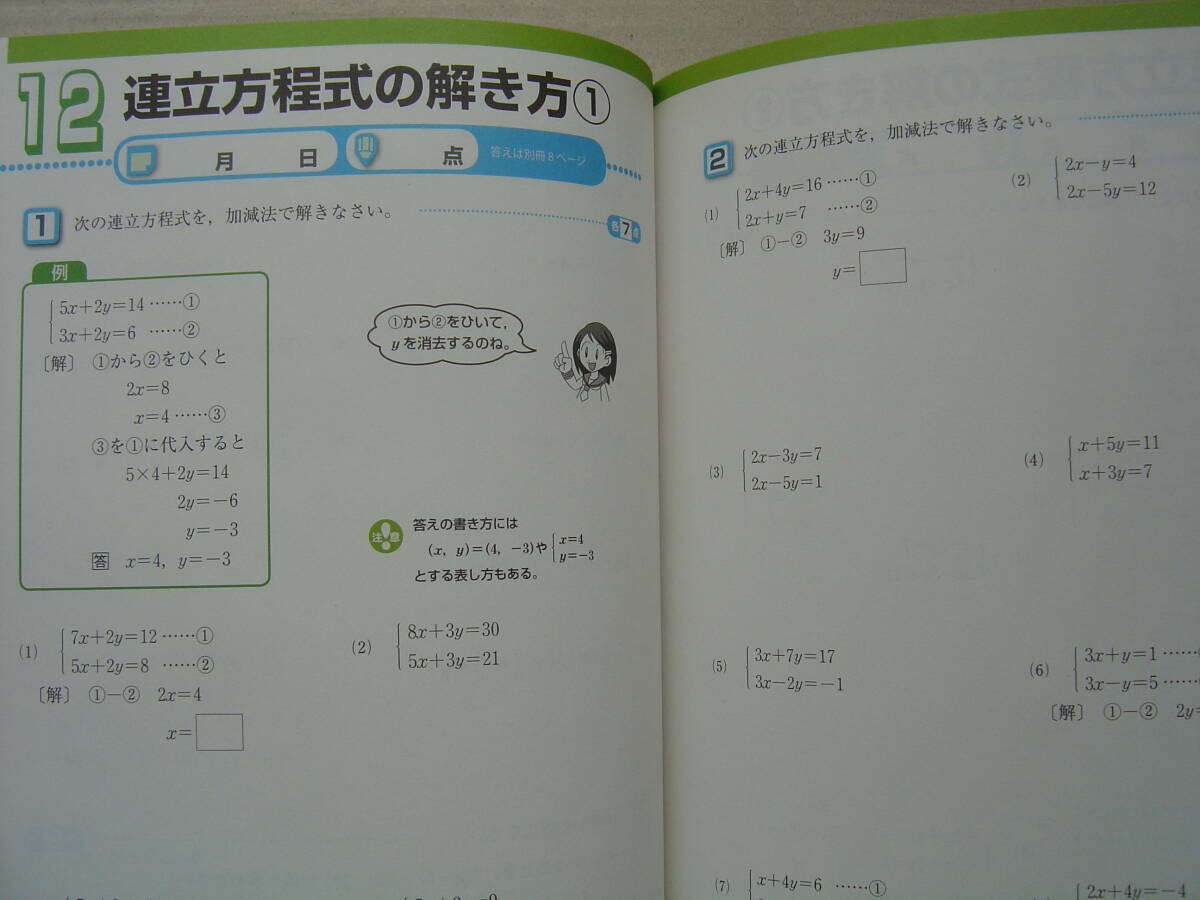 12 連立方程式の解き方①
月 日 点 答えは別冊8ページ
1 次の連立方程式を，加減法で解きなさい。
各7点
例
5x+2y=14 ……①
3x+2y=6 ……②
〔解〕 ①から②をひくと
2x=8
x=4 ……③
③を①に代入すると
5×4+2y=14
2y=−6
y=−3
答 x=4，y=−3
①から②をひいて，
yを消去するのね。
注！意
答えの書き方には
(x，y)=(4，−3)や{x=4
y=−3
とする表し方もある。
(1) 7x+2y=12 ……①
5x+2y=8 ……②
〔解〕 ①−② 2x=4
x=
(2) 8x+3y=30
5x+3y=21
2 次の連立方程式を，加減法で解きなさい。
(1) 2x+4y=16 ……①
2x+y=7 ……②
〔解〕 ①−② 3y=9
y=
(2) 2x−y=4
2x−5y=12
(3) 2x−3y=7
2x−5y=1
(4) x+5y=11
x+3y=7
(5) 3x+7y=17
3x−2y=−1
(6) 3x+y=1 ……
3x−y=5 ……
〔解〕 ①−② 2y=
(7) x+4y=6 ……①
2x+4y=−4